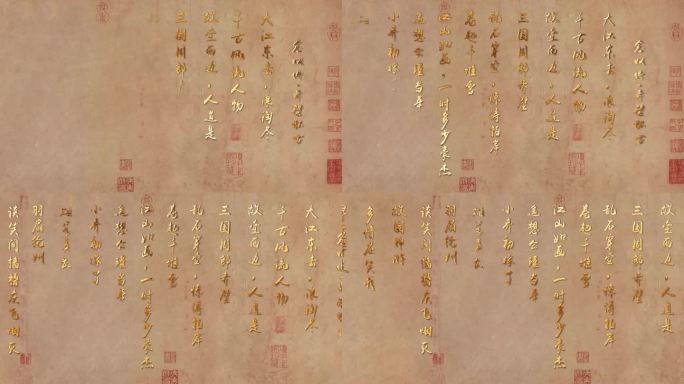 念奴娇·赤壁怀古
大江东去，浪淘尽
千古风流人物
故垒西边，人道是
三国周郎
念奴娇·赤壁怀古
大江东去，浪淘尽
千古风流人物
故垒西边，人道是
三国周郎赤壁
乱石穿空，惊涛拍岸
卷起千堆雪
江山如画，一时多少豪杰
遥想公瑾当年
小乔初嫁
大江东去，浪淘尽
千古风流人物
故垒西边，人道是
三国周郎赤壁
乱石穿空，惊涛拍岸
卷起千堆雪
江山如画，一时多少豪杰
遥想公瑾当年
小乔初嫁了
雄姿英发
羽扇纶巾
谈笑间樯橹灰飞烟灭
故垒西边，人道是
三国周郎赤壁
乱石穿空，惊涛拍岸
卷起千堆雪
江山如画，一时多少豪杰
遥想公瑾当年
小乔初嫁了
雄姿英发
羽扇纶巾
谈笑间樯橹灰飞烟灭
故国神游
多情应笑我